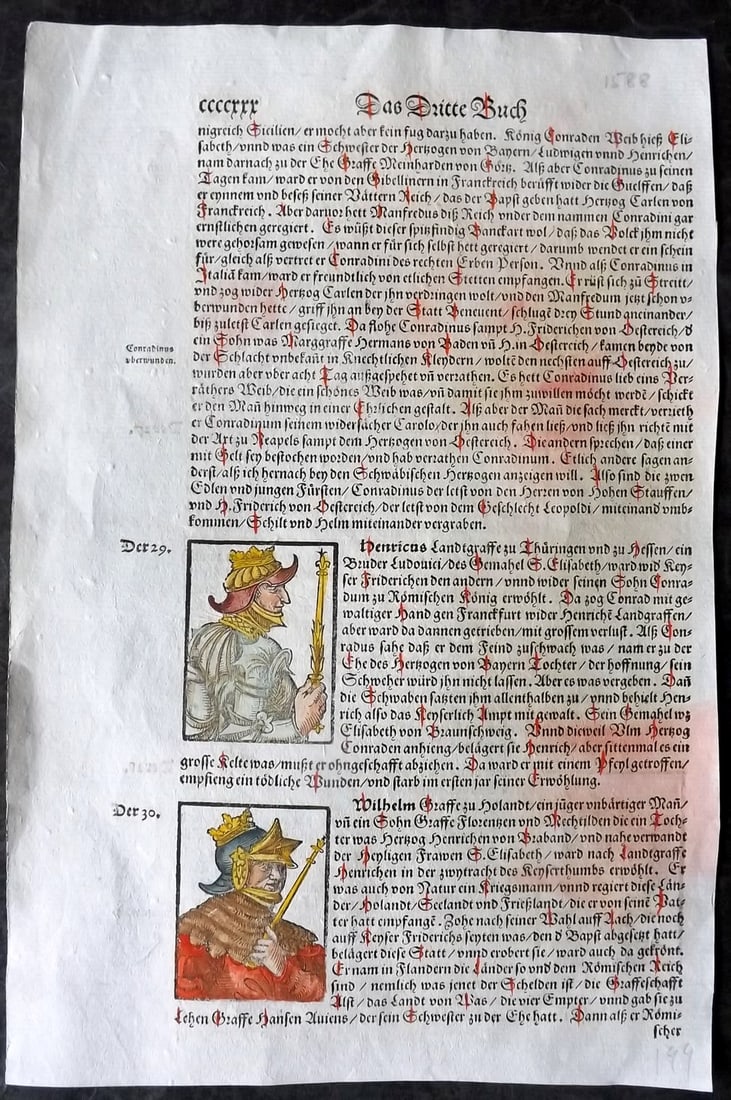 1588
ccccxxx Das Dritte Buch
nigreich Sicilien/ er mocht aber kein fug darzu haben. König Conraden Weib hieß Eli-
sabeth/ vnnd was ein Schwester der Hertzogen von Bayern/ Ludwigen vnnd Henrichen/
nam darnach zu der Ehe Graffe Meinharden von Görtz. Alß aber Conradinus zu seinen
Tagen kam/ ward er von den Gibellinern in Franckreich berüfft wider die Guelffen/ daß
er eynnem vnd beseß seiner Vättern Reich/ das der Papst geben hatt Hertzog Carlen von
Franckreich. Aber daruor hett Manfredus diß Reich vnder dem nammen Conradini gar
ernstlichen geregiert. Es wüßt dieser spitzfündig Banckart wol/ daß das Volck jhm nicht
were gehorsam gewesen/ wann er für sich selbst hett geregiert/ darumb wendet er ein schein
für/ gleich alß vertret er Conradini des rechten Erben Person. Vnnd alß Conradinus in
Italiā kam/ ward er freundtlich von etlichen Stetten empfangen. Er rüst sich zu Streitt/
vnd zog wider Hertzog Carlen der jhn verdringen wolt/ vnd den Manfredum jetzt schon v-
berwunden hette/ griff jhn an bey der Statt Beneuent/ schlugē drey Stund aneinander/
biß zuletst Carlen gesieget. Da flohe Conradinus sampt H. Friderichen von Oestereich/ d
ein Sohn was Marggraffe Hermans von Baden vn̄ H. in Oestereich/ kamen beyde von
der Schlacht vnbekañt in Knechtlichen Kleydern/ woltē den nechsten auff Oestereich zu/
wurden aber vber acht Tag außgespehet vn̄ verrathen. Es hett Conradinus lieb eins Ver-
räthers Weib/ die ein schönes Weib was/ vn̄ damit sie jhm zuwillen möcht werdē/ schickt
er den Mañ hinweg in einer Ehrlichen gestalt. Alß aber der Mañ die sach merckt/ verrieth
er Conradinum seinem widersacher Carolo/ der jhn auch fahen ließ/ vnd ließ jhn richtē mit
der Axt zu Neapels sampt dem Hertzogen von Oestereich. Die andern sprechen/ daß einer
mit Gelt sey bestochen worden/ vnd hab verrathen Conradinum. Etlich andere sagen an-
derst/ alß ich hernach bey den Schwäbischen Hertzogen anzeigen will. Also sind die zwen
Edlen vnd jungen Fürsten/ Conradinus der letst von den Herzen von Hohen Stauffen/
vnd H. Friderich von Oestereich/ der letst von dem Geschlecht Leopoldi/ miteinand vmb-
kommen/ Schilt vnd Helm miteinander vergraben.
Conradinus
vberwunden.
Der 29.
Henricus Landtgraffe zu Thüringen vnd zu Hessen/ ein
Bruder Ludouici/ des Gemahel S. Elisabeth/ ward wid Key-
ser Friderichen den andern/ vnnd wider seinen Sohn Conra-
dum zu Römischen König erwöhlt. Da zog Conrad mit ge-
waltiger Hand gen Franckfurt wider Henrichē Landgraffen/
aber ward da dannen getrieben/ mit grossem verlust. Alß Con-
radus sahe daß er dem Feind zuschwach was/ nam er zu der
Ehe des Hertzogen von Bayern Tochter/ der hoffnung/ sein
Schweher würd jhn nicht lassen. Aber es was vergeben. Dañ
die Schwaben satzten jhm allenthalben zu/ vnnd behielt Hen-
rich also das Keyserlich Ampt mit gewalt. Sein Gemahel wz
Elisabeth von Braunschweig. Vnnd dieweil Vlm Hertzog
Conraden anhieng/ belägert sie Henrich/ aber sittenmal es ein
grosse Kelte was/ mußt er ohngeschafft abziehen. Da ward er mit einem Pfeyl getroffen/
empfieng ein tödliche Wunden/ vnd starb im ersten jar seiner Erwöhlung.
Der 30.
Wilhelm Graffe zu Holandt/ ein jūger vnbärtiger Mañ/
vn̄ ein Sohn Graffe Florentzen vnd Mechtilden die ein Toch-
ter was Hertzog Henrichen von Braband/ vnd nahe verwandt
der Heyligen Frawen S. Elisabeth/ ward nach Landtgraffe
Henrichen in der zwytracht des Keyserthumbs erwöhlt. Er
was auch von Natur ein Kriegsmann/ vnnd regiert diese Län-
der/ Holandt/ Seelandt vnd Frießlandt/ die er von seinē Vat-
ter hatt empfangē. Zohe nach seiner Wahl auff Aach/ die noch
auff Keyser Friderichs seyten was/ den d Bapst abgesetzt hatt/
belägert diese Statt/ vnnd erobert sie/ ward auch da gekrönt.
Er nam in Flandern die Länder so vnd dem Römischen Reich
sind/ nemlich was jenet der Schelden ist/ die Graffeschafft
Alst/ das Landt von Was/ die vier Empter/ vnnd gab sie zu
Lehen Graffe Hansen Auiens/ der sein Schwester zu der Ehe hatt. Dann alß er Römi-
scher
199